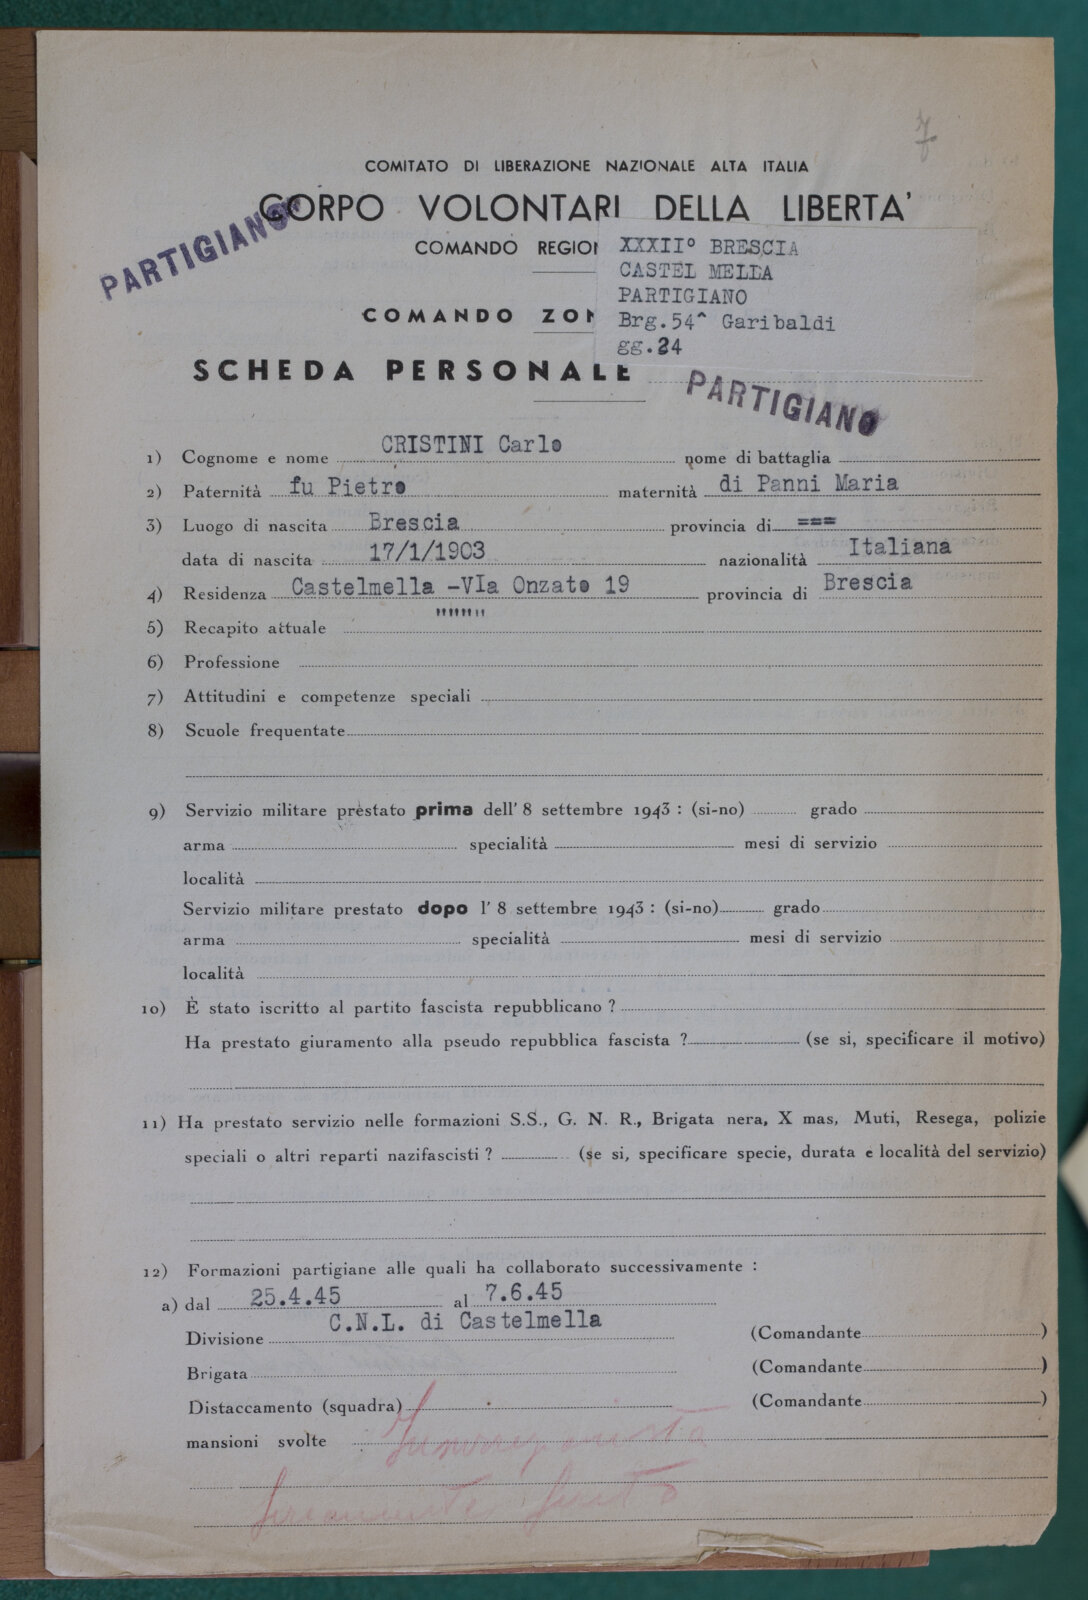 7
COMITATO DI LIBERAZIONE NAZIONALE ALTA ITALIA
CORPO VOLONTARI DELLA LIBERTA'
PARTIGIANO
COMANDO REGION
XXXII° BRESCIA
CASTEL MELLA
PARTIGIANO
Brg.54^ Garibaldi
gg.24
COMANDO ZON
SCHEDA PERSONALE
PARTIGIANO
1) Cognome e nome CRISTINI Carlo nome di battaglia
2) Paternità fu Pietro maternità di Panni Maria
3) Luogo di nascita Brescia provincia di ===
data di nascita 17/1/1903 nazionalità Italiana
4) Residenza Castelmella -VIa Onzato 19 provincia di Brescia
"""""""
5) Recapito attuale
6) Professione
7) Attitudini e competenze speciali
8) Scuole frequentate
9) Servizio militare prestato prima dell' 8 settembre 1943 : (si-no) grado
arma specialità mesi di servizio
località
Servizio militare prestato dopo l' 8 settembre 1943 : (si-no) grado
arma specialità mesi di servizio
località
10) È stato iscritto al partito fascista repubblicano ?
Ha prestato giuramento alla pseudo repubblica fascista ? (se si, specificare il motivo)
11) Ha prestato servizio nelle formazioni S.S., G. N. R., Brigata nera, X mas, Muti, Resega, polizie
speciali o altri reparti nazifascisti ? (se si, specificare specie, durata e località del servizio)
12) Formazioni partigiane alle quali ha collaborato successivamente :
a) dal 25.4.45 al 7.6.45
Divisione C.N.L. di Castelmella (Comandante )
Brigata (Comandante )
Distaccamento (squadra) (Comandante )
mansioni svolte
ferito